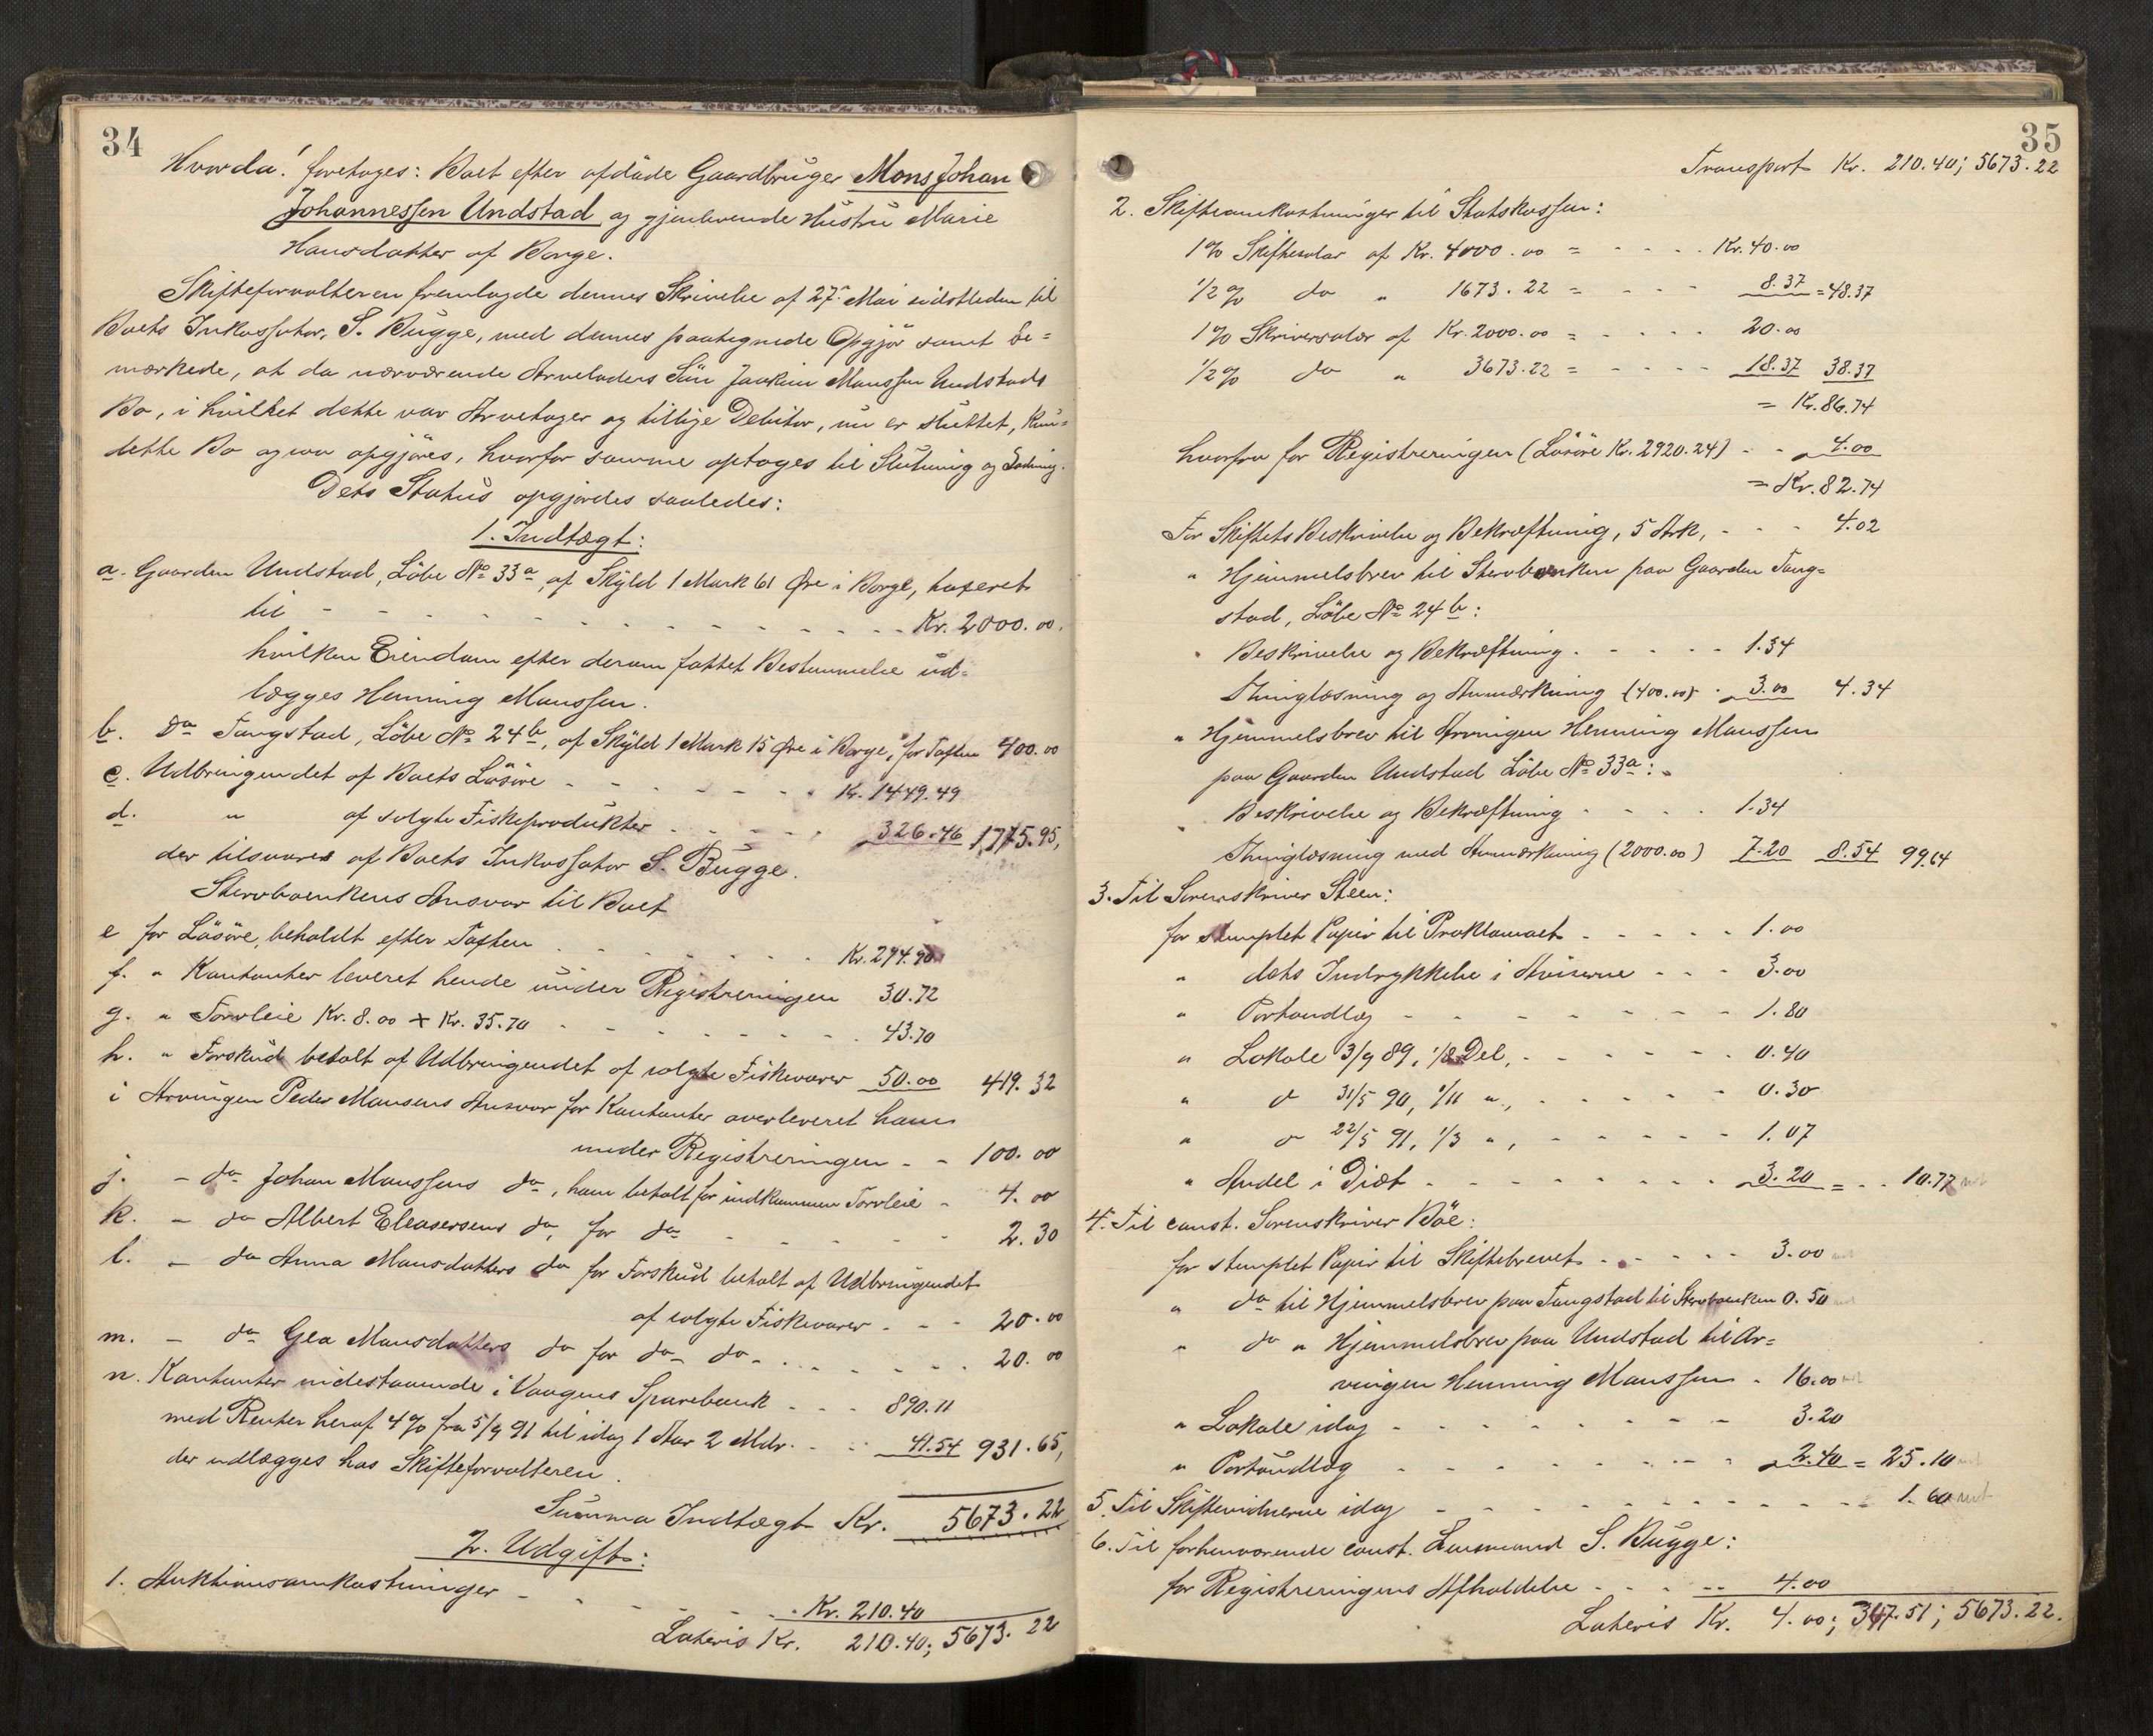 34
Hvorda! foretoges: Boet efter afdöde Gaardbruger Mons Johan
Johannessen Undstad og gjenlevende Hustru Marie
Hansdatter af Borge.
Skifteforvalteren fremlagde dennes Skrivelse af 27de Mai sidstleden til
Boets Inkassator, S. Bugge, med dennes paategnede Opgjör samt be=
mærkede, at da nærværende Arveladers Sön Joakim Monssen Undstads
Bo, i hvilket dette var Arvetager og tillige Debitor, nu er sluttet, kun=
dette Bo ogsaa opgjöres, hvorfor samme optages til Slutning og Lodning.
Dets Status opgjordes saaledes:
1. Indtægt:
a. Gaarden Undstad, Löbe No 33a, af Skyld 1 Mark 61 Öre i Borge, taxeret
til - - - Kr. 2000.00.
hvilken Eiendom efter derom fattet Bestemmelse ud=
lægges Henning Monssen.
b. do Tangstad, Löbe No 24b, af Skyld 1 Mark 15 Öre i Borge, for Taxten 400.00
c. Udbringendet af Boets Lösöre - - - Kr. 1449.49
d. " af solgte Fiskeprodukter - - - 326.46 1775.95,
der tilsvares af Boets Inkassator S. Bugge.
Stervboenkens Ansvar til Boet
e for Lösöre, beholdt efter Taxten - - - Kr. 294.90
f. " Kontanter leveret hende under Registreringen 30.72
g. " Torvleie Kr. 8.00 + Kr. 35.70 - - - 43.70
h. " Forskud betalt af Udbringendet af solgte Fiskevarer 50.00 419.32
i Arvingen Peder Monsens Ansvar for Kontanter overleveret ham
under Registreringen - - 100.00
j. - do Johan Monssens do, ham betalt for indkommen Torvleie - 4.00
k. - do Albert Eleasersens do, for do - - - 2.30
l. - do Anna Monsdatters do for Forskud betalt af Udbringendet
af solgte Fiskevarer - - - 20.00
m. - do Gea Monsdatters do for do - do - - - 20.00
n. Kontanter indestaaende i Vaagens Sparebank - - - 890.11
med Renter heraf 4% fra 5/9 91 til idag 1 Aar 2 Mdr. - - 41.54 931.65,
der udlægges hos Skifteforvalteren.
Summa Indtægt Kr. 5673.22
2. Udgift:
1. Auktionsomkostninger - - - Kr. 210.40
Lateris Kr. 210.40; 5673.22
35
Transport Kr. 210.40; 5673.22
2. Skifteomkostninger til Statskassen:
1% Skiftesalær af Kr. 4000.00 = - - - Kr. 40.00
1/2% do " 1673.22 = - - - 8.37 = 48.37
1% Skriversalær af Kr. 2000.00 = - - - 20.00
1/2% do " 3673.22 = - - - 18.37 38.37
= Kr. 86.74
hvorfra for Registreringen (Lösöre Kr. 2920.24) - - 4.00
= Kr. 82.74
For Skiftets Beskrivelse og Bekræftning, 5 Ark, - - - 4.02
" Hjemmelsbrev til Stervboenken paa Gaarden Tang=
stad, Löbe No 24b:
Beskrivelse og Bekræftning - - - 1.34
Thinglæsning og Anmærkning (400.00) - 3.00 4.34
" Hjemmelsbrev til Arvingen Henning Monssen
paa Gaarden Undstad Löbe No 33a:
Beskrivelse og Bekræftning - - - 1.34
Thinglæsning med Anmærkning (2000.00) 7.20 8.54 99.64
3. Til Sorenskriver Steen:
for stemplet Papir til Proklamaet - - - 1.00
" dets Indrykkelse i Aviserne - - - 3.00
" Portoudlæg - - - 1.80
" Lokale 3/9 89, 1/8 Del, - - - 0.40
" do 31/5 90, 1/11 ", - - - 0.30
" do 22/5 91, 1/3 ", - - - 1.07
" Andel i Diæt - - - 3.20 = - - 10.77
4. Til const. Sorenskriver Böe:
for stemplet Papir til Skiftebrevet - - - 3.00
" do til Hjemmelsbrev paa Tangstad til Stervboenken 0.50
" do " Hjemmelsbrev paa Undstad til Ar=
vingen Henning Monssen - 16.00
" Lokale idag - - - 3.20
" Portoudlæg - - - 2.40 = 25.10
5. Til Skiftevidnerne idag - - - 1.60
6. Til forhenværende const. Lensmand S. Bugge:
for Registreringens Afholdelse - - - 4.00
Lateris Kr. 4.00; 347.51; 5673.22.